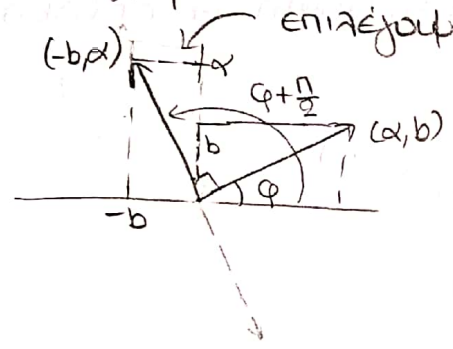 επιλέγουμ
(-b,α)
α
φ+π/2
(α,b)
b
φ
-b